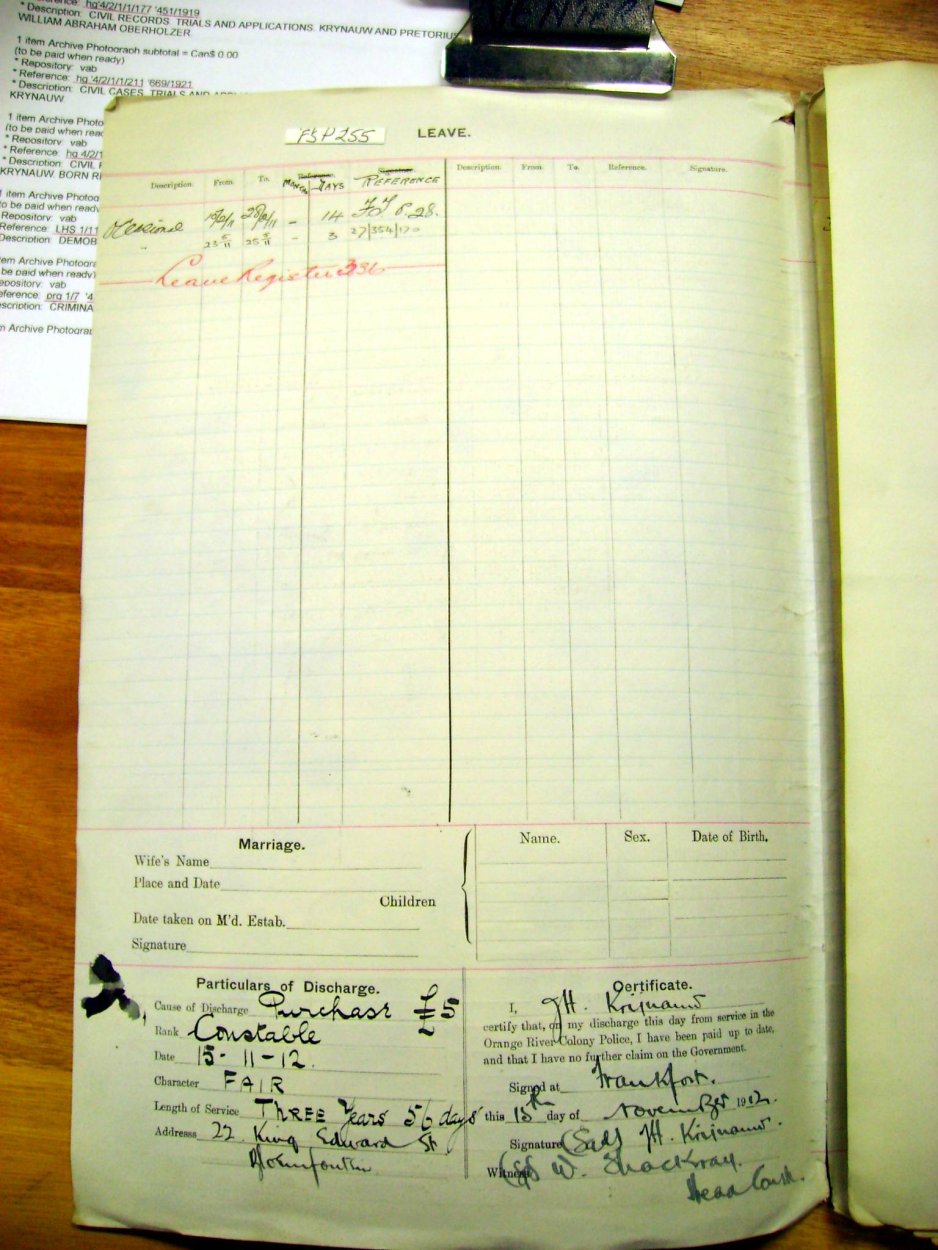 hg 4/2/1/1/177 451/1919
* Description: CIVIL RECORDS. TRIALS AND APPLICATIONS. KRYNAUW AND PRETORIUS
WILLIAM ABRAHAM OBERHOLZER
1 item Archive Photograph subtotal = Can$ 0.00
(to be paid when ready)
* Repository: vab
* Reference: hg 4/2/1/1/211 669/1921
* Description: CIVIL CASES. TRIALS AND
KRYNAUW
1 item Archive Photo
(to be paid when read
* Repository: vab
* Reference: hg 4/2/1
* Description: CIVIL
KRYNAUW. BORN R
1 item Archive Photog
to be paid when ready
Repository: vab
Reference: LHS 1/11
Description: DEMOB
em Archive Photogra
be paid when ready)
epository: vab
eference: prg 1/7 '4
scription: CRIMINA
m Archive Photogra
FSP 255 LEAVE.
Description. From. To. Months Days Reference Description. From. To. Reference. Signature.
14
23 5/11 25 5/11 - 3 27/354/170
Leave Register 336
Marriage.
Wife's Name
Place and Date
Children
Date taken on M'd. Estab.
Signature
Name. Sex. Date of Birth.
Particulars of Discharge.
Cause of Discharge Purchase £5
Rank Constable
Date 15-11-12.
Character FAIR
Length of Service THREE Years 56 days
Addresss 22 King Edward St
Bloemfontein
Certificate.
I, JH. Krijnauw
certify that, on my discharge this day from service in the
Orange River Colony Police, I have been paid up to date,
and that I have no further claim on the Government.
Signed at Frankfort.
this 15th day of November 1912.
Signature (Sgd) JH. Krijnauw.
Witness (Sgd) W. Thackray.
Head Const.